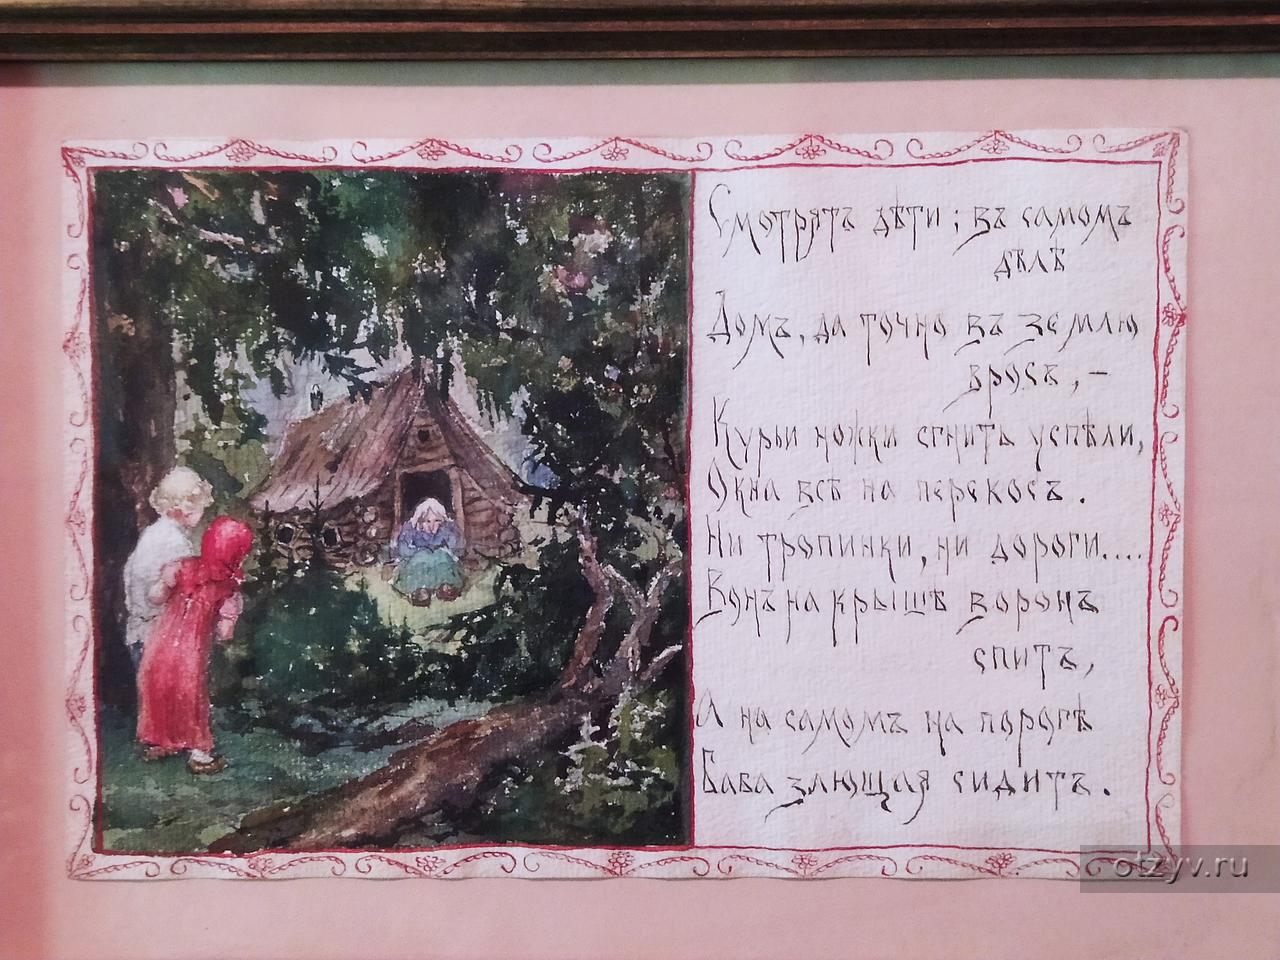 Смотрятъ дѣти; въ самомъ
дѣлѣ
Домъ, да точно въ землю
вросъ,-
Курьи ножки сгнить успѣли,
Окна всѣ на перекосъ.
Ни тропинки, ни дороги....
Вонъ на крышѣ воронъ
спитъ,
А на самомъ на порогѣ
Баба злющая сидитъ.
otzyv.ru